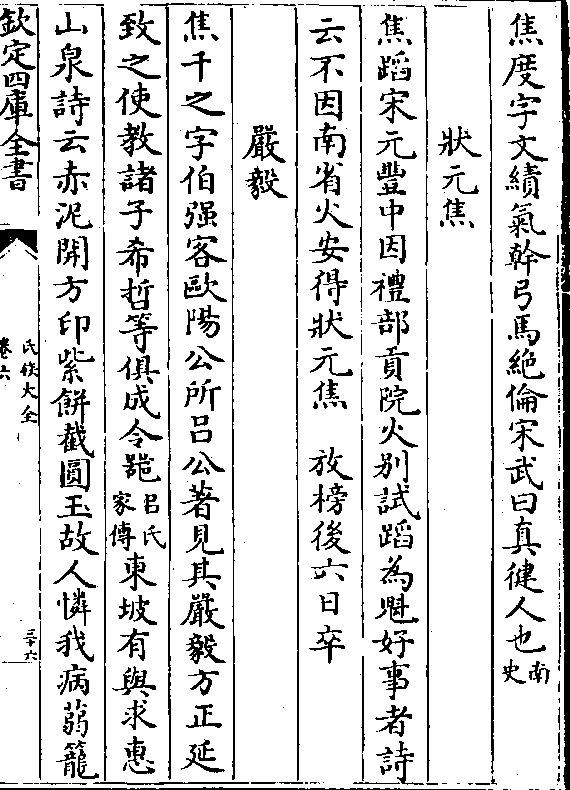 焦度字文績氣幹弓馬絶倫宋武曰真健人也南史
狀元焦
焦蹈宋元豐中因禮部貢院火别試蹈為魁好事者詩
云不因南省火安得狀元焦　放榜後六日卒
嚴毅
焦千之字伯强客歐陽公所吕公著見其嚴毅方正延
致之使教諸子希哲等俱成令器吕氏家傳東坡有與求惠
山泉詩云赤泥開方印紫餅截圓玉故人憐我病蒻籠
欽定四庫全書
氏族大全
卷六
三十六